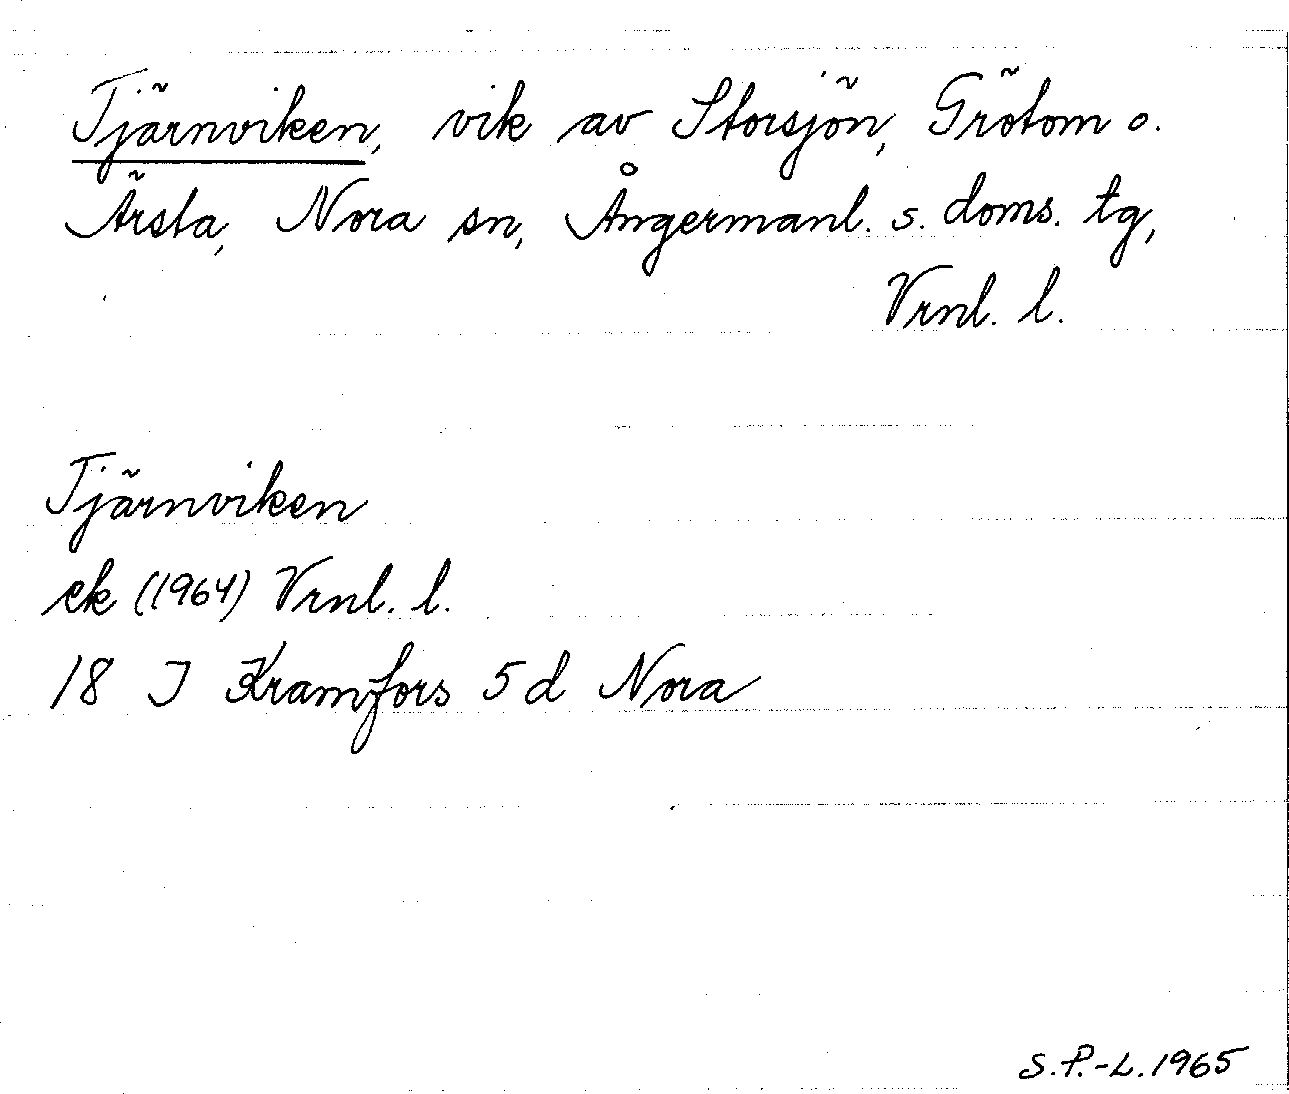 Tjärnviken, vik av Storsjön, Grötom o.
Ärsta, Nora sn, Ångermanl. s. doms. tg,
Vrnl. l.
Tjärnviken
ek (1964) Vrnl. l.
18 J Kramfors 5 d Nora
S.P.-L. 1965